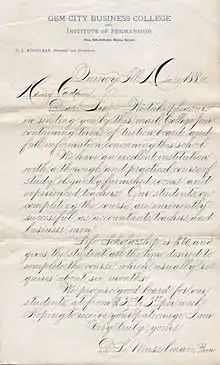 GEM CITY BUSINESS COLLEGE
AND
INSTITUTE OF PENMANSHIP,
D. L. MUSSELMAN, Principal and Proprietor.
Quincy, Ill.
Dear Sir: We take pleasure
in sending you by this mail College Jour
containing terms of tuition board and
full information concerning this school.
We have an excellent institution
with a thorough and practical course of
study, elegantly furnished rooms and
experienced teachers. Our students on
completing the course are eminently
successful as accountants teachers and
business men.
Life Scholarship is $40 and
gives the student all the time desired to
complete the course which usually re
quires about six months.
We procure good board for our
students at from $2.50 to $3 per week
Hoping to receive your patronage I am
Very truly yours
D. L. Musselman, Prin